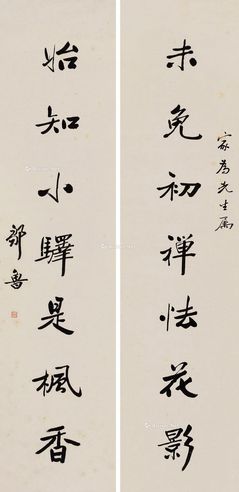 未免初禅怯花影
家为先生属
始知小驿是枫香
邹鲁